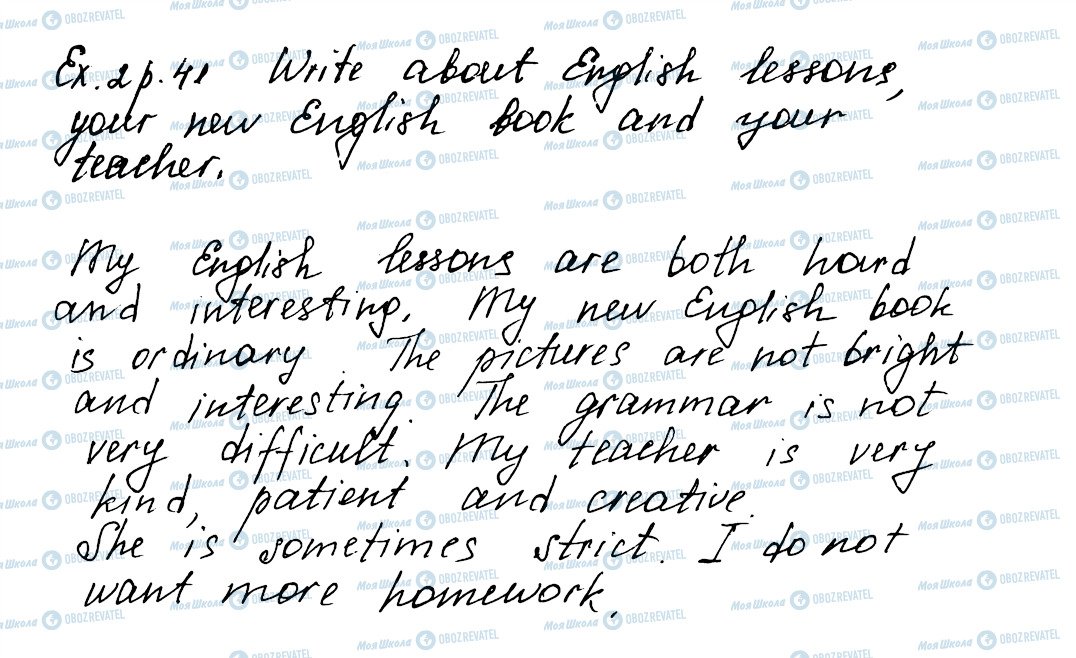 Ex. 2 p. 41 Write about English lessons,
your new English book and your
teacher.
My English lessons are both hard
and interesting. My new English book
is ordinary. The pictures are not bright
and interesting. The grammar is not
very difficult. My teacher is very
kind, patient and creative.
She is sometimes strict. I do not
want more homework.